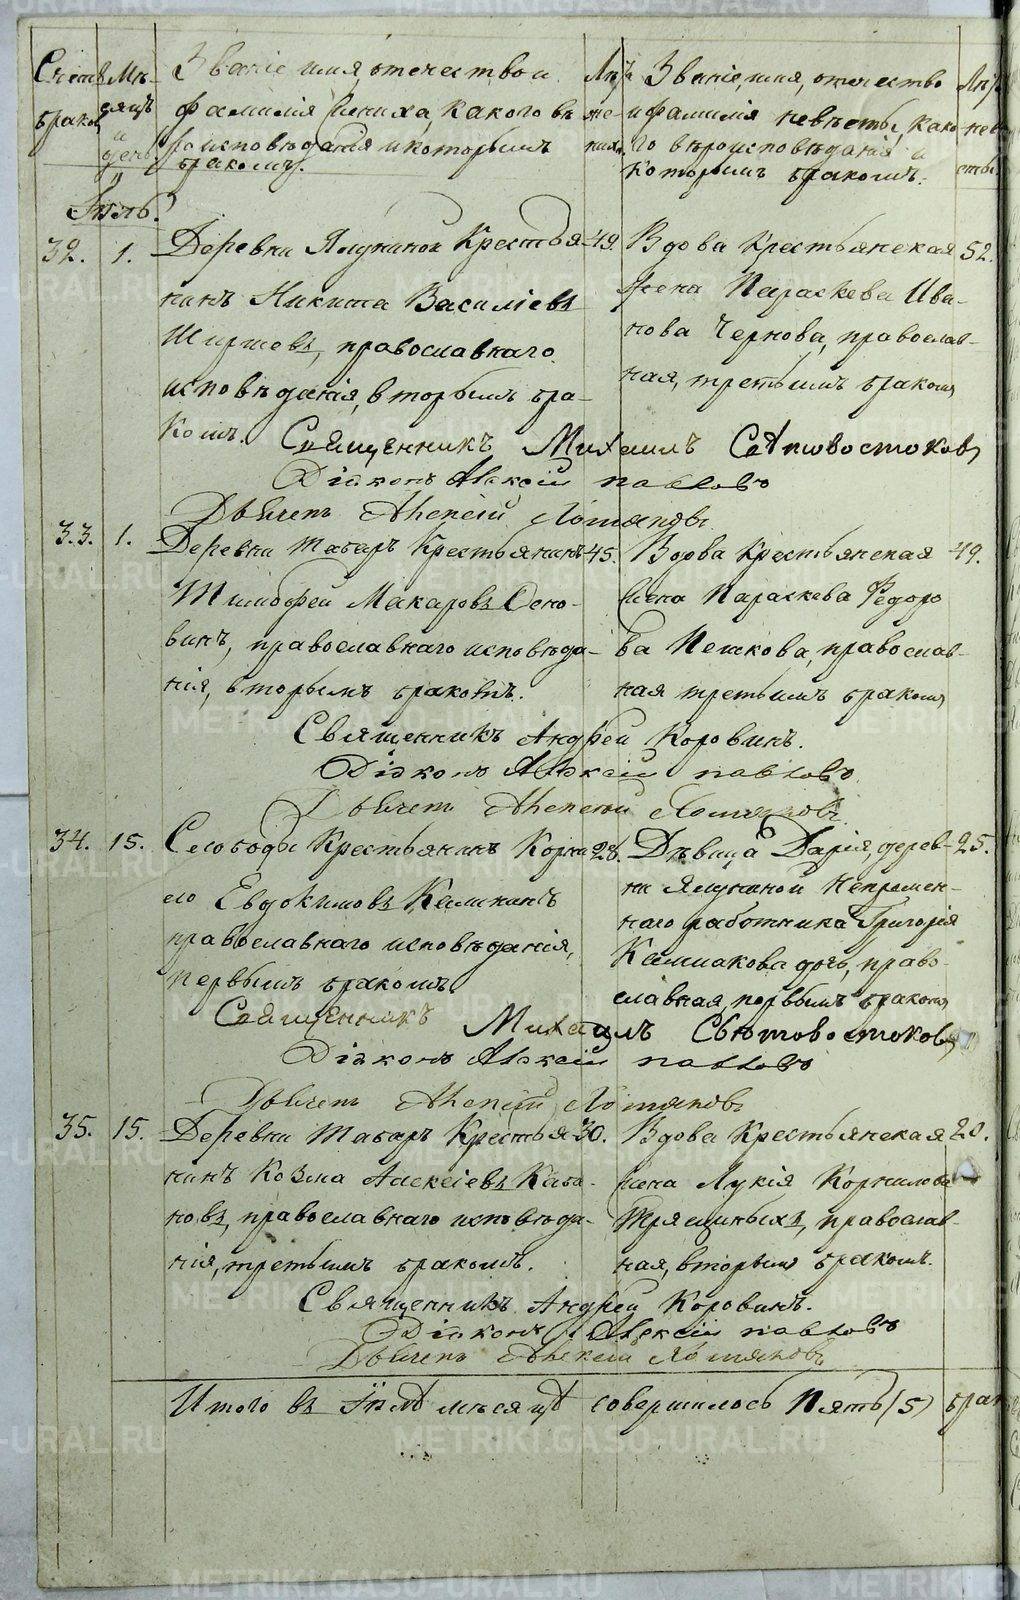 Счетъ браков
Мѣсяцъ и день
Званіе, имя, отечество и
фамилія жениха, какого вѣ-
роисповѣданія и которымъ
бракомъ.
Лѣта жениха
Званіе, имя, отчество
и фамилія невѣсты, како-
го вѣроисповѣданія и
которымъ бракомъ.
Лѣта невѣсты
Іюль.
32. 1.
Деревни Ялуниной Крестья-
нинъ Никита Василіевъ
православнаго
исповѣданія, вторымъ бра-
комъ.
49.
Вдова Крестьянская
жена Параскева Ива-
нова Чернова, православ-
ная, третьимъ бракомъ
52.
Священникъ Михаилъ Свѣтовостоковъ
Діаконъ Алексій Павловъ
Дьячекъ Алексій Хотяновъ
33. 1.
Деревни Таборъ Крестьянинъ
Тимофей Макаровъ Сено-
винъ, православнаго исповѣда-
нія, вторымъ бракомъ.
45.
Вдова Крестьянская
жена Параскева Федоро
ва Пешкова, православ-
ная третьимъ бракомъ
49.
Священникъ Андрей Коровинъ.
Діаконъ Алексій Павловъ
Дьячекъ Алексій Хотяновъ
34. 15.
Слободы Крестьянинъ Корни
ло Евдокимовъ Калининъ
православнаго исповѣданія,
первымъ бракомъ.
28.
Дѣвица Дарія, дерев-
ни Ялуниной Непремен-
наго работника Григорія
Калмакова дочь, право-
славная, первымъ бракомъ
25.
Священникъ Михаилъ Свѣтовостоковъ
Діаконъ Алексій Павловъ
Дьячекъ Алексій Хотяновъ
35. 15.
Деревни Таборъ Крестья-
нинъ Козма Алексіевъ Каба-
новъ, православнаго исповѣда-
нія, третьимъ бракомъ.
30.
Вдова Крестьянская
жена Лукія Корнилова
православ-
ная, вторымъ бракомъ.
20.
Священникъ Андрей Коровинъ.
Діаконъ Алексій Павловъ
Дьячекъ Алексій Хотяновъ
Итого въ Іюлѣ мѣсяцѣ совершилось Пять (5) брак
METRIKI.GASO-URAL.RU